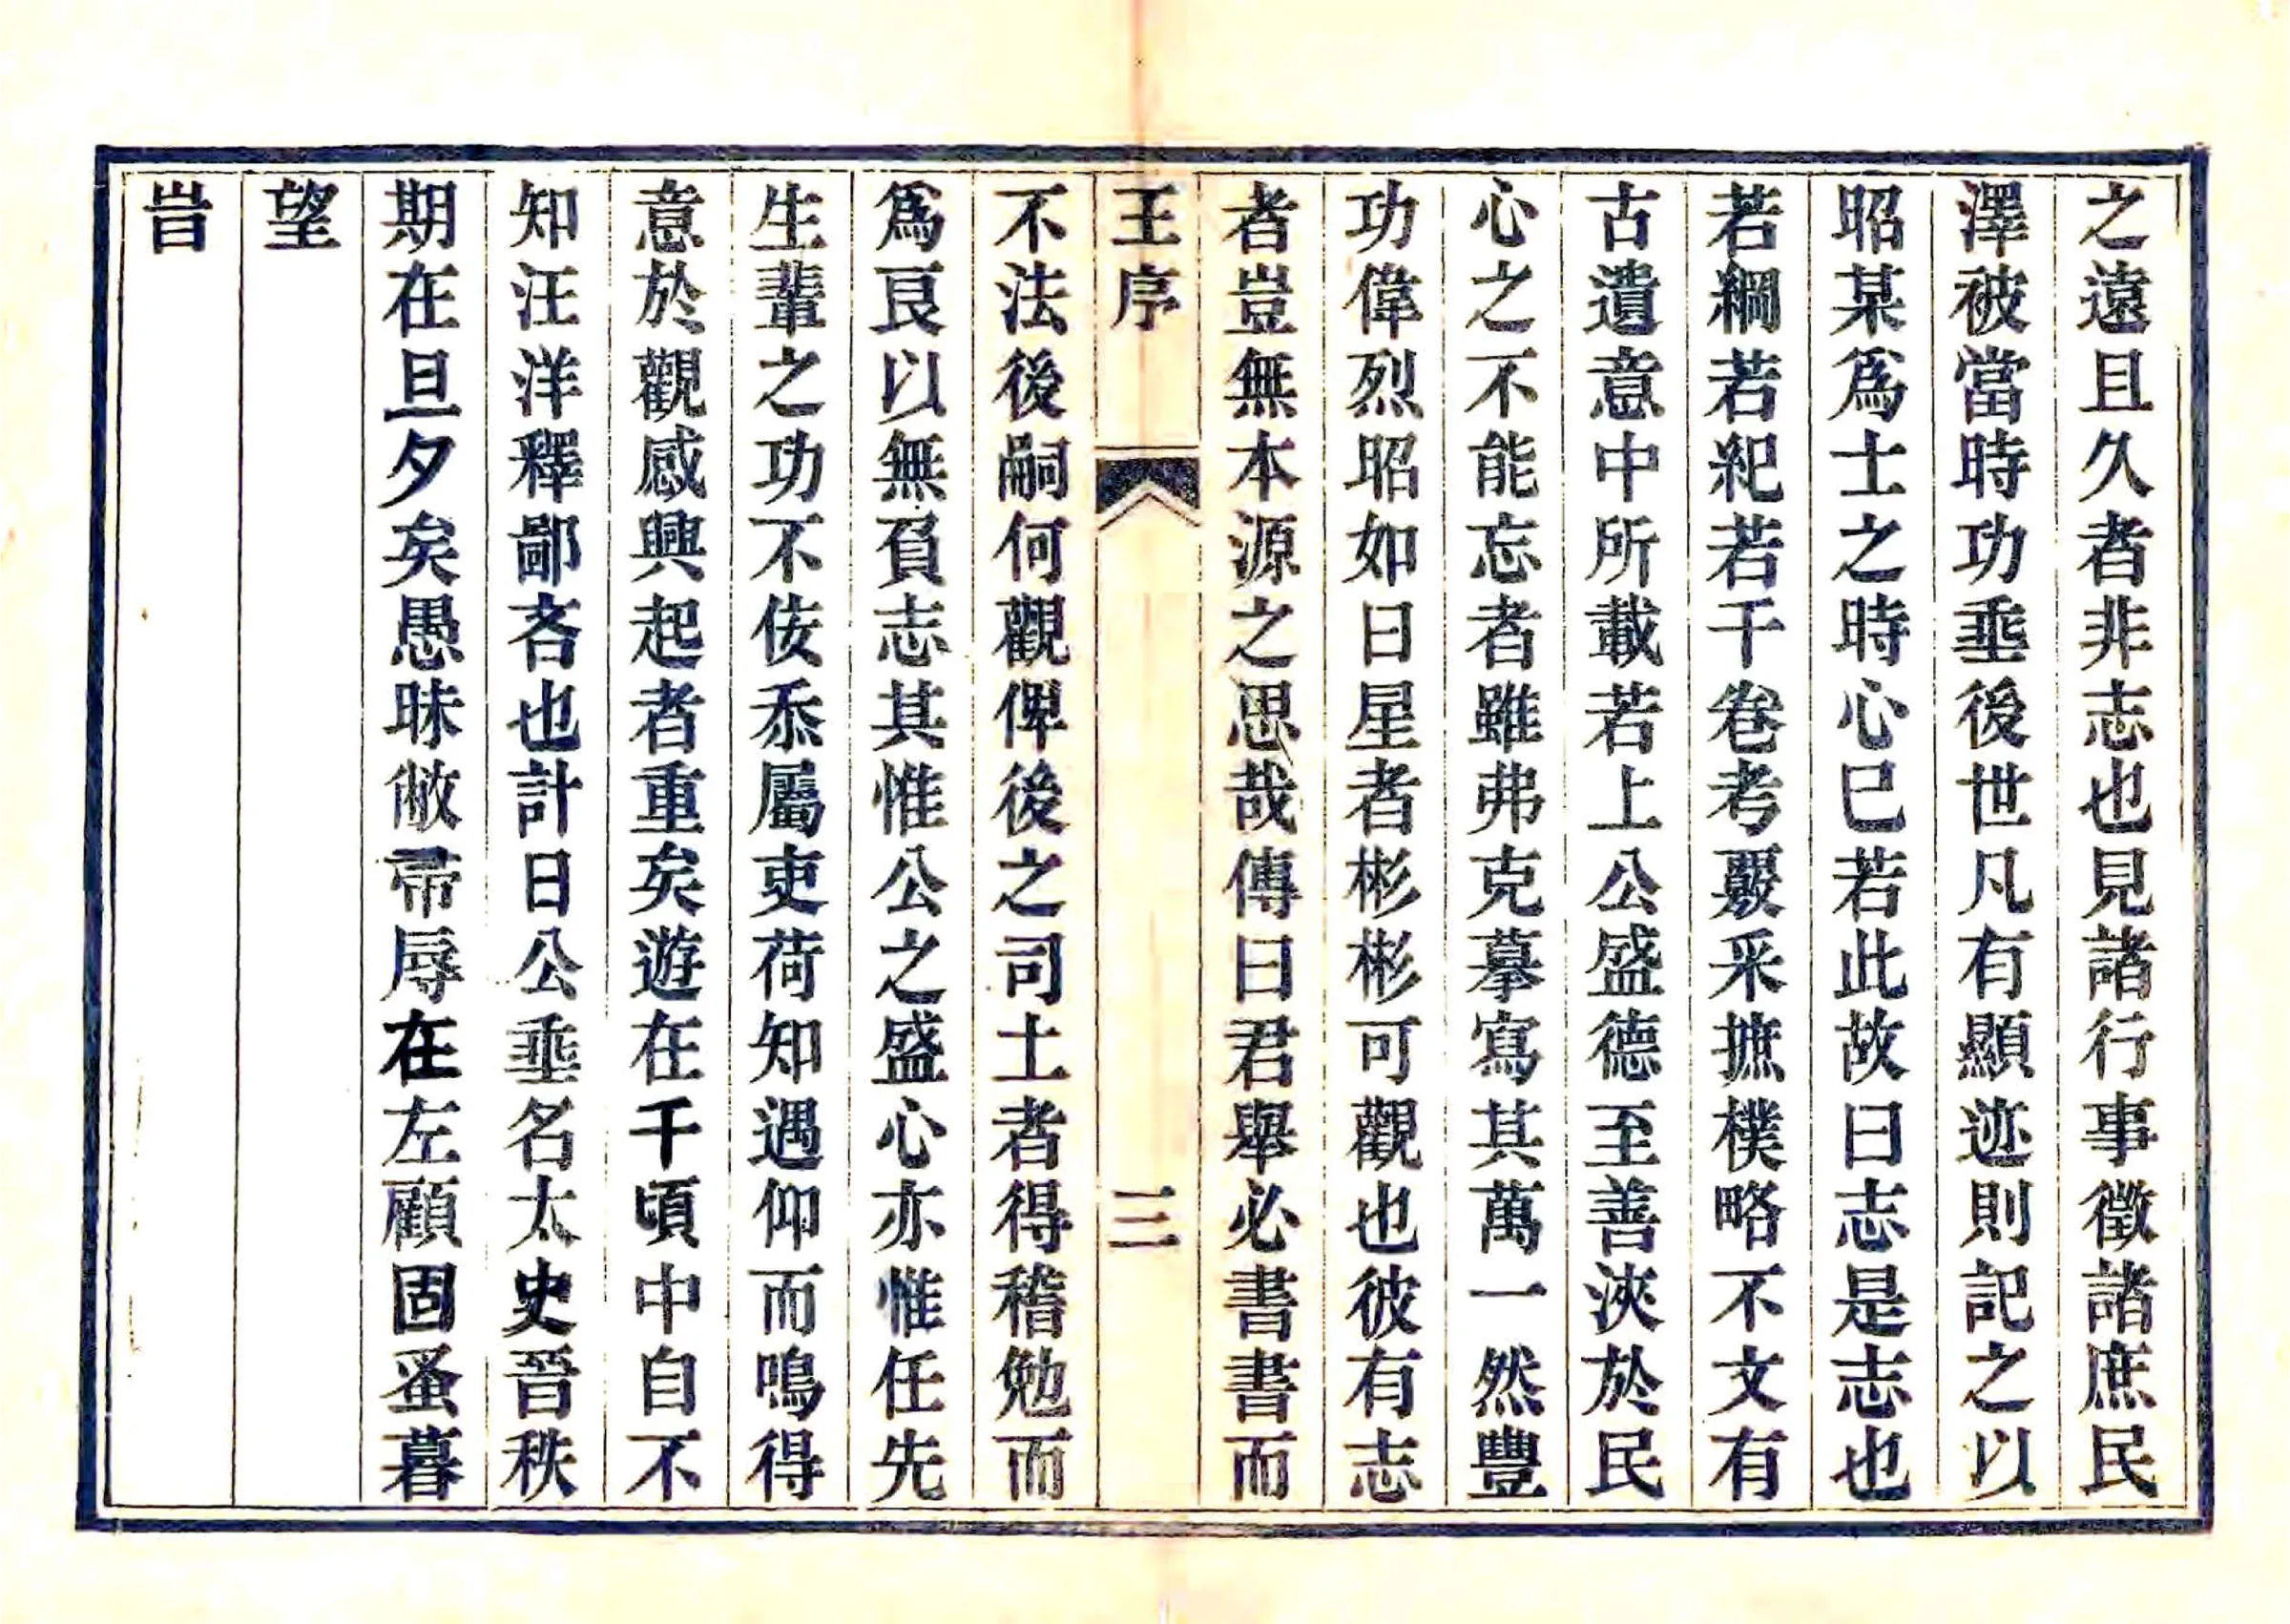 之遠且久者非志也見諸行事徵諸庶民
澤被當時功垂後世凡有顯迹則記之以
昭某爲士之時心巳若此故曰志是志也
若綱若紀若干卷考覈采摭樸略不文有
古遺意中所載若上公盛德至善浹於民
心之不能忘者雖弗克摹寫其萬一然豐
功偉烈昭如日星者彬彬可觀也彼有志
者豈無本源之思哉傳曰君舉必書書而
王序
三
不法後嗣何觀俾後之司土者得稽勉而
爲良以無負志其惟公之盛心亦惟任先
生輩之功不佞忝屬吏荷知遇仰而鳴得
意於觀感興起者重矣遊在千頃中自不
知汪洋釋鄙吝也計日公垂名太史晉秩
期在旦夕矣愚昧敝帚辱在左顧固蚤暮
望
旹